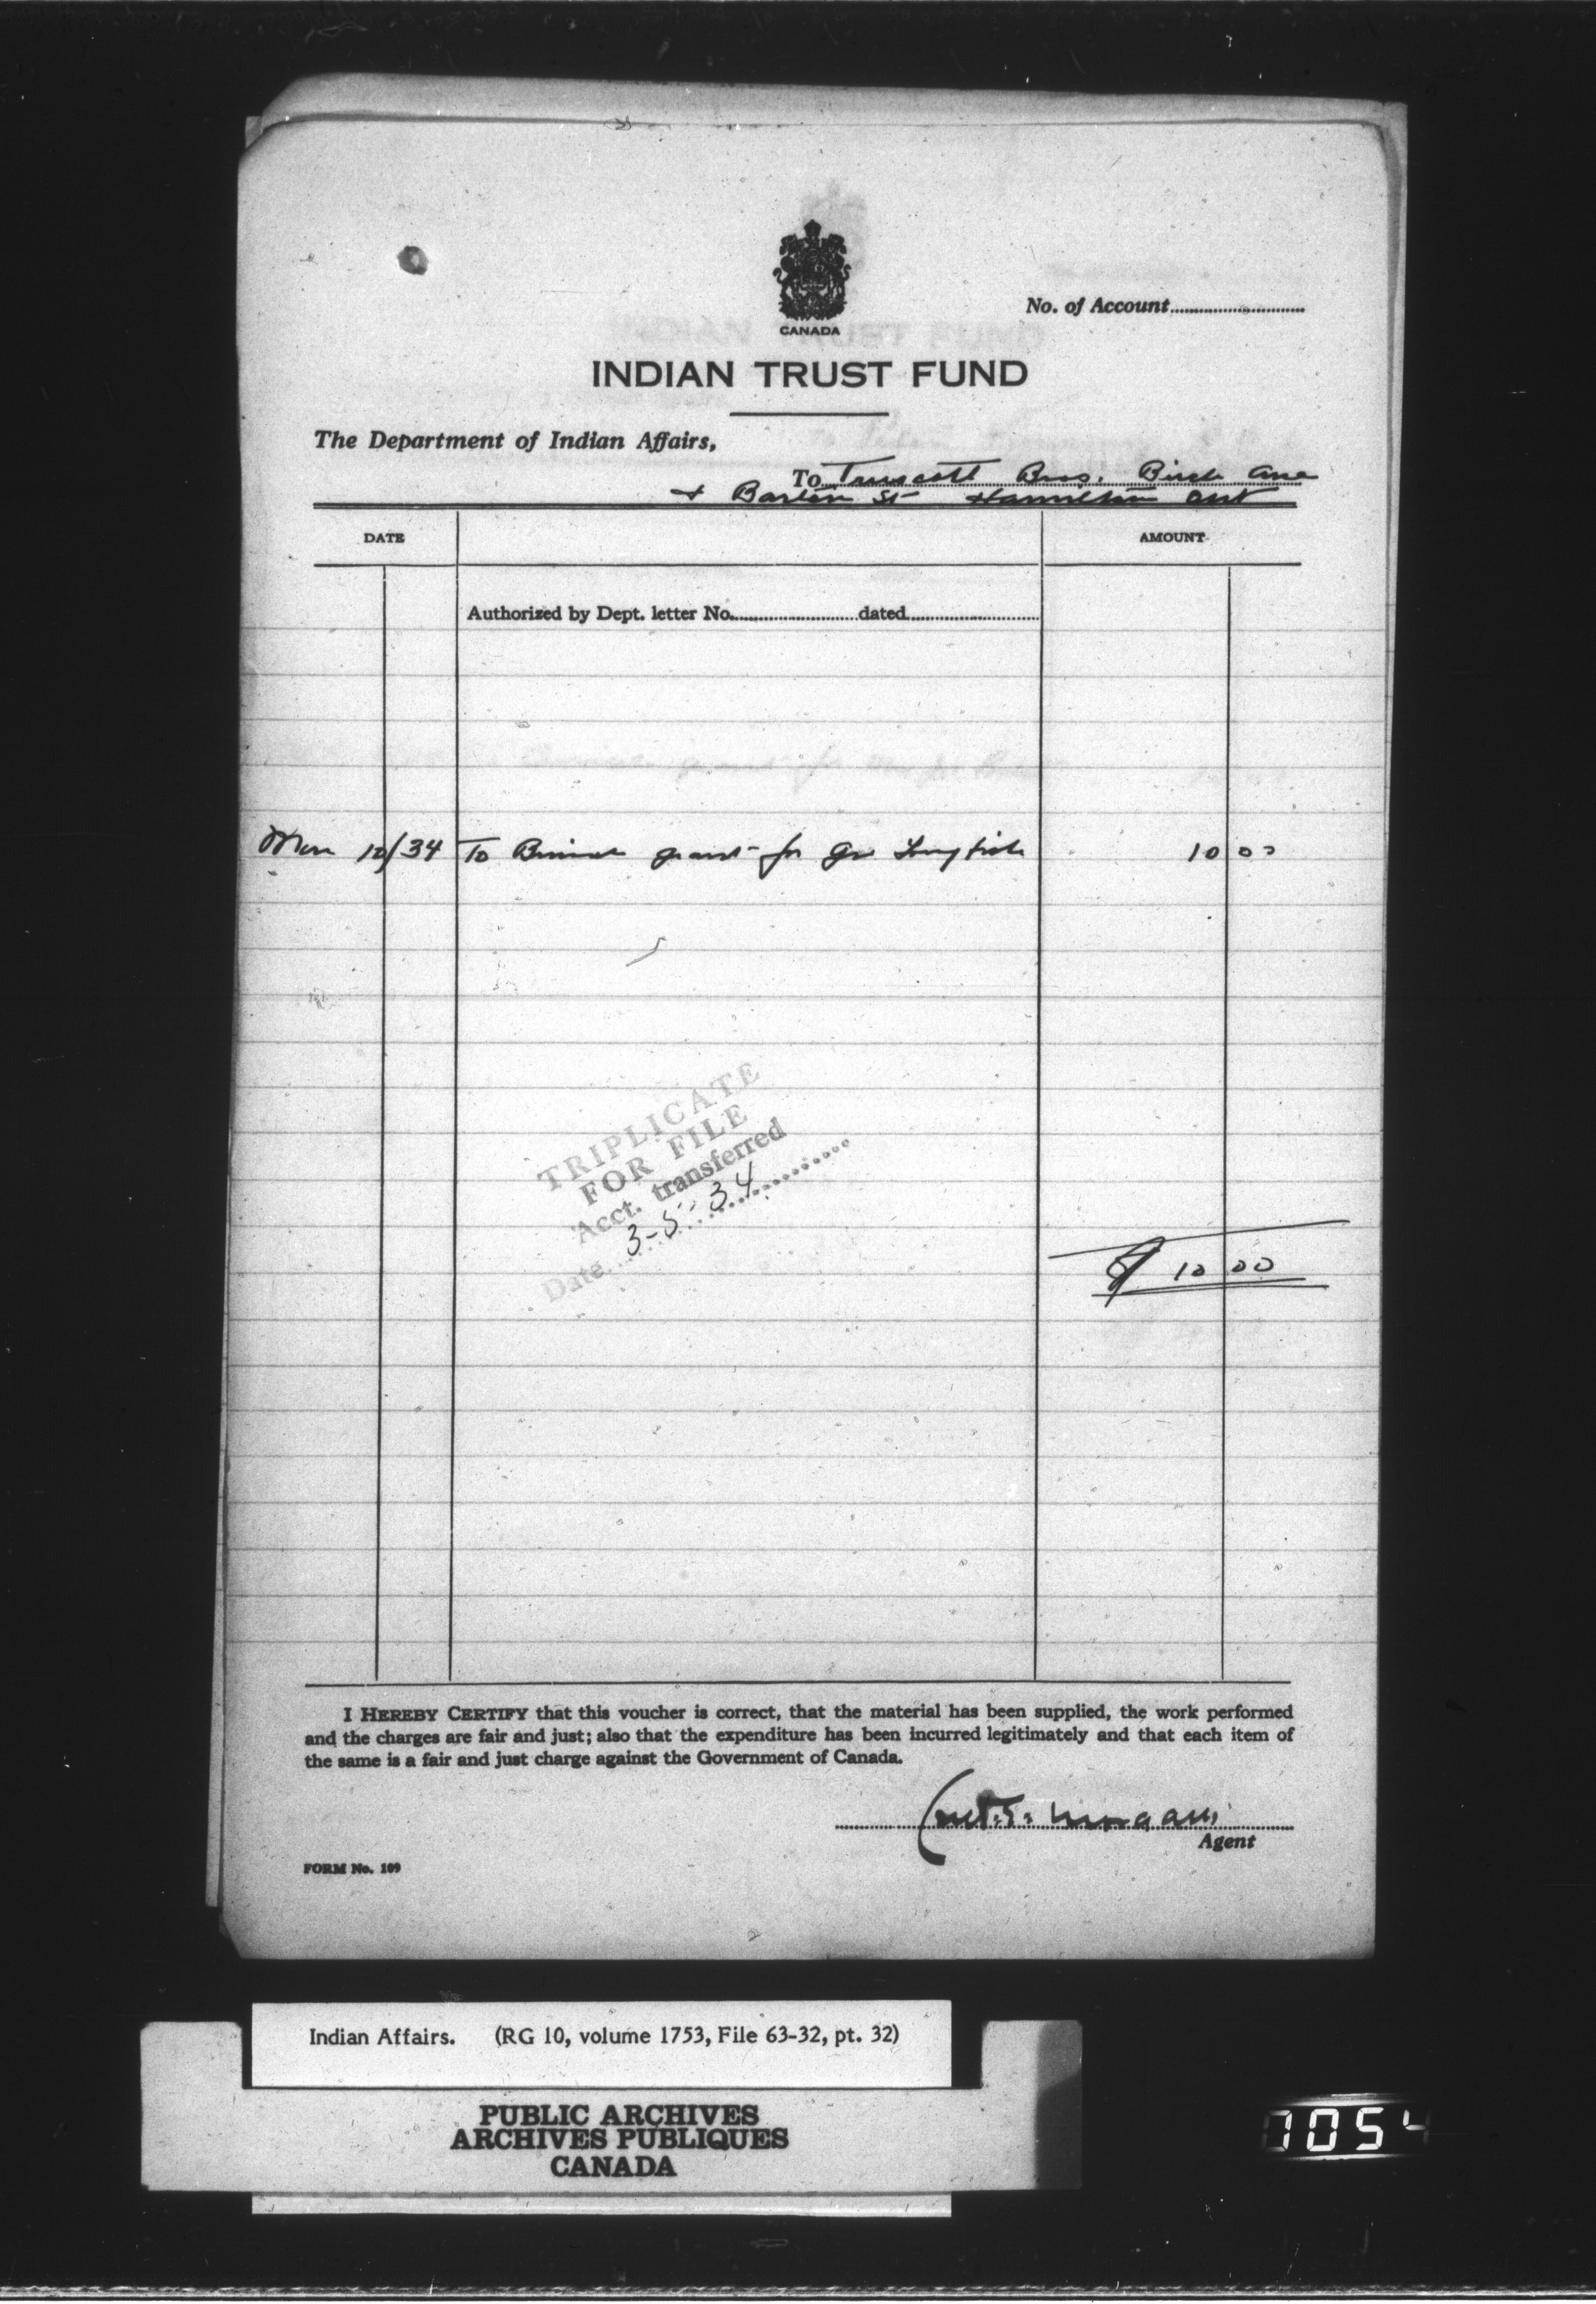 CANADA
No. of Account
INDIAN TRUST FUND
The Department of Indian Affairs,
To Truscott Bros. Birch Ave
+ Barton St Hamilton Ont
DATE
AMOUNT
Authorized by Dept. letter No. dated
Mar 10/34 To Burial grant for 10 00
TRIPLICATE
FOR FILE
Acct. transferred
Date 3-5-34
$ 10 00
I HEREBY CERTIFY that this voucher is correct, that the material has been supplied, the work performed
and the charges are fair and just; also that the expenditure has been incurred legitimately and that each item of
the same is a fair and just charge against the Government of Canada.
Morgan
Agent
FORM No. 109
Indian Affairs. (RG 10, volume 1753, File 63-32, pt. 32)
PUBLIC ARCHIVES
ARCHIVES PUBLIQUES
CANADA
1054